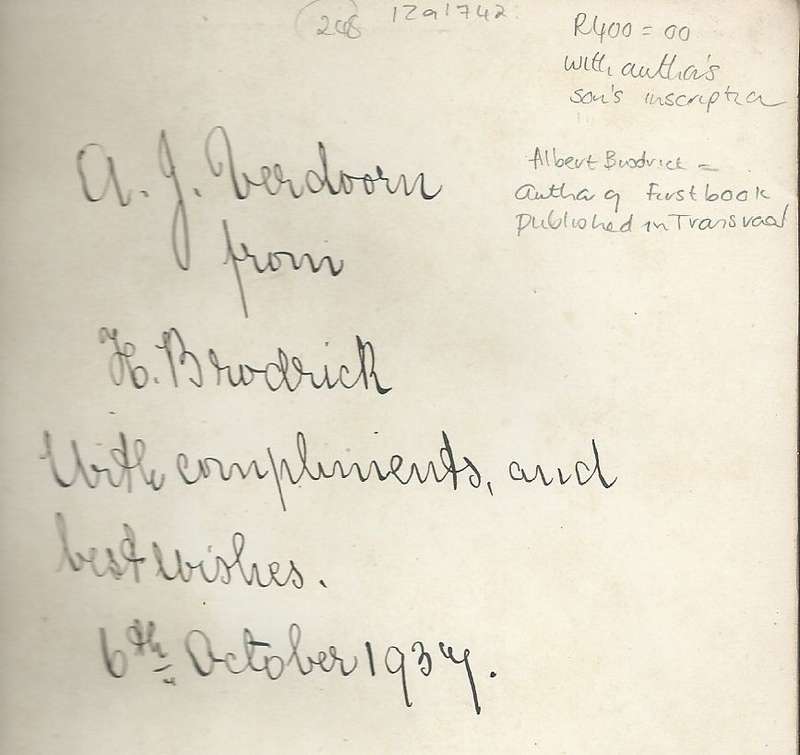 248 12a1742
R400=00
with autha's
son's inscription
Albert Brodrick =
autha of first book
published in Transvaal
A. J. Verdoorn
from
H. Brodrick
With compliments, and
best wishes.
6th October 1937.